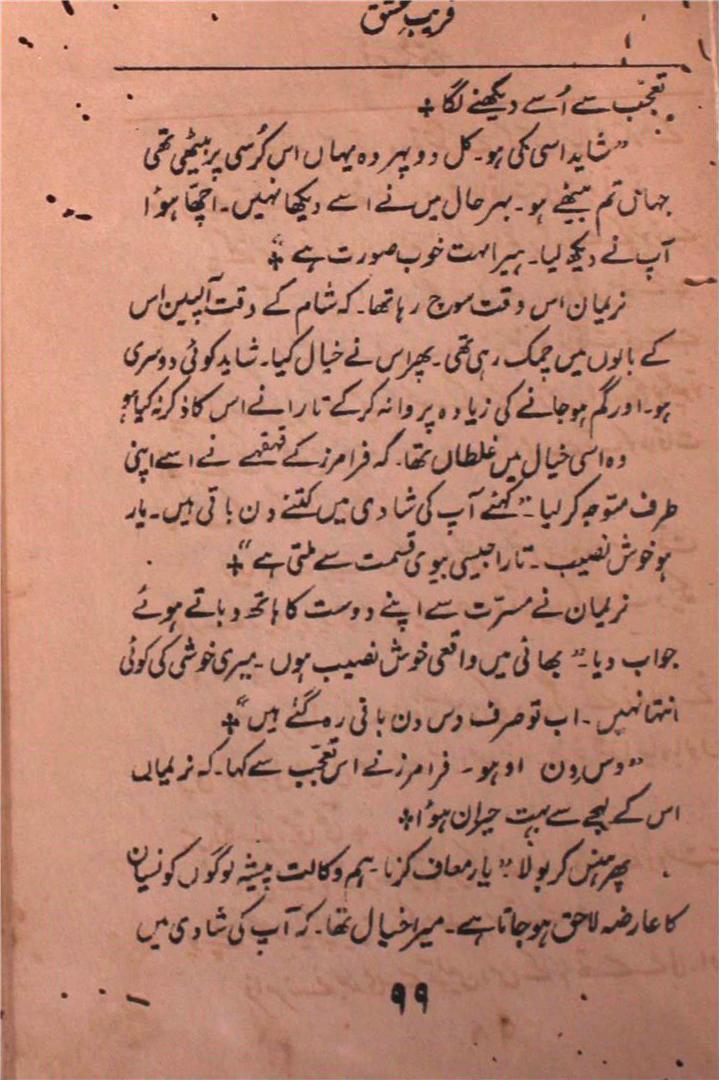 فریبِ عشق
تعجّب سے اُسے دیکھنے لگا +
”شاید اسی کی ہو۔ کل دوپہر وہ یہاں اس کُرسی پر بیٹھی تھی
جہاں تم بیٹھے ہو۔ بہر حال میں نے اسے دیکھا نہیں۔ اچھّا ہؤا
آپ نے دیکھ لیا۔ ہیرا بہت خوب صورت ہے“ +
نریمان اس وقت سوچ رہا تھا۔ کہ شام کے وقت آلپین اس
کے بالوں میں چمک رہی تھی۔ پھر اس نے خیال کیا۔ شاید کوئی دوسری
ہو۔ اور گم ہو جانے کی زیادہ پروا نہ کر کے تارا نے اس کا ذکر نہ کیا ہو
وہ اسی خیال میں غلطاں تھا۔ کہ فرامرز کے قہقہے نے اسے اپنی
طرف متوجہ کر لیا۔ ”کہئے آپ کی شادی میں کتنے دن باقی ہیں۔ یار
ہو خوش نصیب۔ تارا جیسی بیوی قسمت سے ملتی ہے“ +
نریمان نے مسرّت سے اپنے دوست کا ہاتھ دباتے ہوئے
جواب دیا۔ ”بھائی میں واقعی خوش نصیب ہوں۔ میری خوشی کی کوئی
انتہا نہیں۔ اب تو صرف دس دن باقی رہ گئے ہیں“ +
”دس دن اوہو۔ فرامرز نے اس تعجّب سے کہا۔ کہ نریمان
اس کے لہجے سے بہت حیران ہؤا +
پھر ہنس کر بولا ”یار معاف کرنا۔ ہم وکالت پیشہ لوگوں کو نسیان
کا عارضہ لاحق ہو جاتا ہے۔ میرا خیال تھا۔ کہ آپ کی شادی میں
۹۹